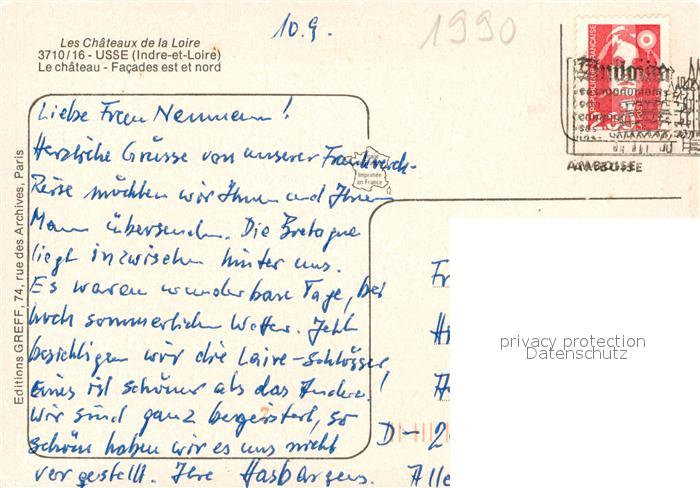 10.9.
1990
Les Châteaux de la Loire
3710/16 - USSE (Indre-et-Loire)
Le château - Façades est et nord
AMBOISE
Liebe Frau Neumann!
Herzliche Grüsse von unserer Frankreich-
Reise möchten wir Ihnen und Ihrem
Mann übersenden. Die Bretagne
liegt inzwischen hinter uns.
Es waren wunderbare Tage, bei
hoch sommerlichem Wetter. Jetzt
besichtigen wir die Loire-Schlösser
Eines ist schöner als das Andere!
Wir sind ganz begeistert, so
schön haben wir es uns nicht
vorgestellt. Ihre Hasbargens.
Imprimée
en France
Editions GREFF, 74, rue des Archives, Paris
Fr
H
D-2
Alle
privacy protection
Datenschutz